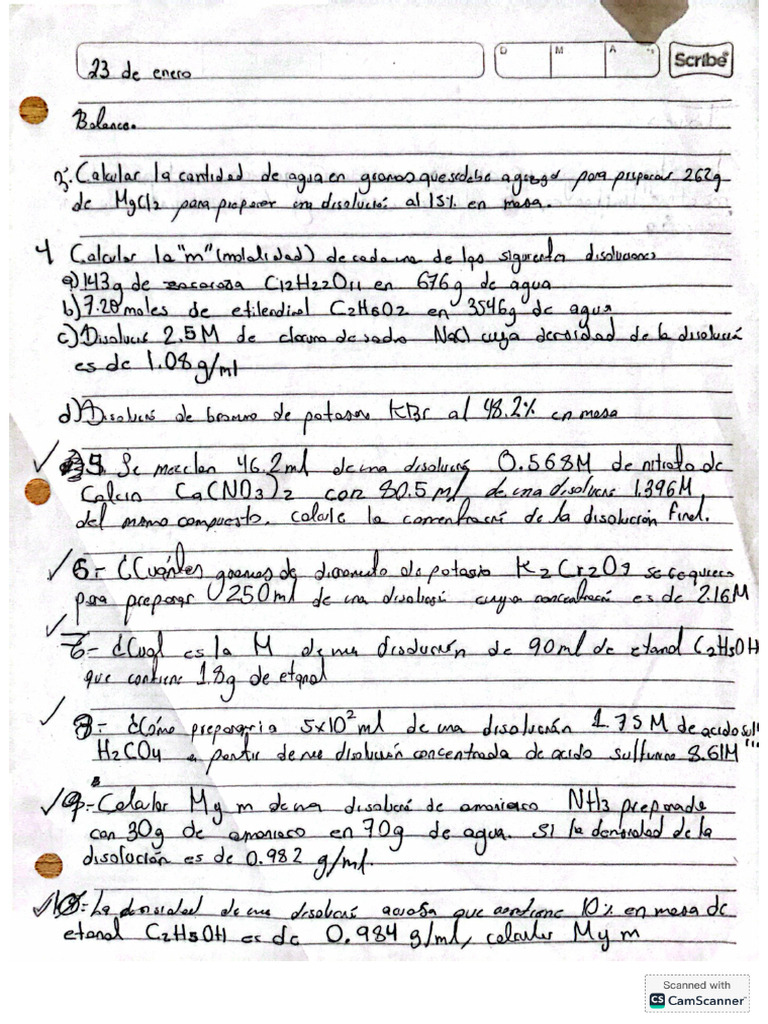 D M A
Scribe
23 de enero
Balance.
3. Calcular la cantidad de agua en gramos que se debe agregar para preparar 262g
de MgCl2 para preparar una disolución al 15% en masa.
4 Calcular la "m" (molalidad) de cada una de las siguientes disoluciones
a) 143g de sacarosa C12H22O11 en 676g de agua
b) 7.20 moles de etilendiol C2H6O2 en 3546g de agua
c) Disolución 2.5M de cloruro de sodio NaCl cuya densidad de la disolución
es de 1.08 g/ml
d) Disolución de bromuro de potasio KBr al 48.2% en masa
5. Se mezclan 46.2ml de una disolución 0.568M de nitrato de
Calcio Ca(NO3)2 con 80.5 ml de una disolución 1.396M
del mismo compuesto. calcule la concentración de la disolución final.
6.- ¿Cuántos gramos de dicromato de potasio K2Cr2O7 se requieren
para preparar 250ml de una disolución cuya concentración es de 2.16M
7.- ¿Cual es la M de una disolución de 90ml de etanol C2H5OH
que contiene 1.8g de etanol
8.- ¿Cómo prepararia 5x10² ml de una disolución 1.75M de acido
H2CO4 a partir de una disolución concentrada de acido sulfurico 8.61M
9.- Calcular M y m de una disolución de amoniaco NH3 preparada
con 30g de amoniaco en 70g de agua. Si la densidad de la
disolución es de 0.982 g/ml.
10.- La densidad de una disolución acuosa que contiene 10% en masa de
etanol C2H5OH es de 0.984 g/ml, calcular M y m
Scanned with
CS CamScanner